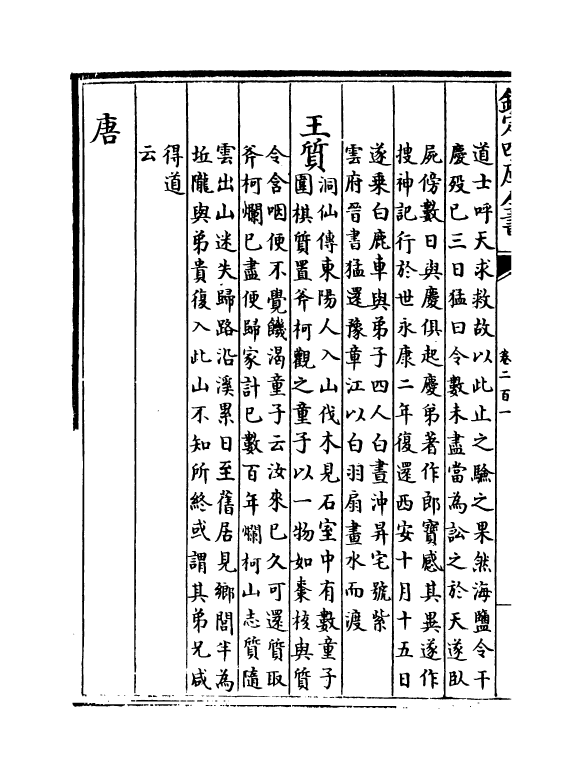 欽定四庫全書
卷二百一
道士呼天求救故以此止之驗之果然海鹽令干
慶殁已三日猛曰令數未盡當為訟之於天遂臥
屍傍數日與慶俱起慶弟著作郎寶感其異遂作
搜神記行於世永康二年復還西安十月十五日
遂乗白鹿車與弟子四人白晝沖昇宅號紫
雲府晉書猛還豫章江以白羽扇畫水而渡
王質
洞仙傳東陽人入山伐木見石室中有數童子
圍棋質置斧柯觀之童子以一物如棗核與質
令含咽便不覺饑渴童子云汝來已久可還質取
斧柯爛已盡便歸家計已數百年爛柯山志質隨
雲出山迷失歸路沿溪累日至舊居見鄉閭半為
坵隴與弟貴復入此山不知所終或謂其弟兄咸
得道
云
唐